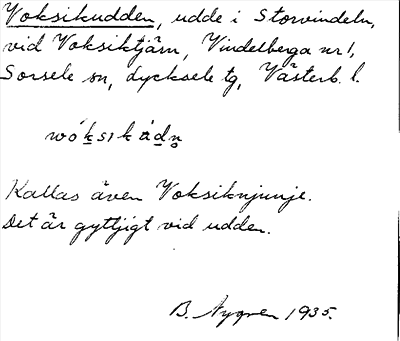 Voksikudden, udde i Storvindeln,
vid Voksiktjärn, Vindelberga nr 1,
Sorsele sn, Lycksele tg, Västerb. l.
wók̲sikád̲n̥
Kallas även Voksiknjunje.
Det är gyttjigt vid udden.
B. Nygren 1935.